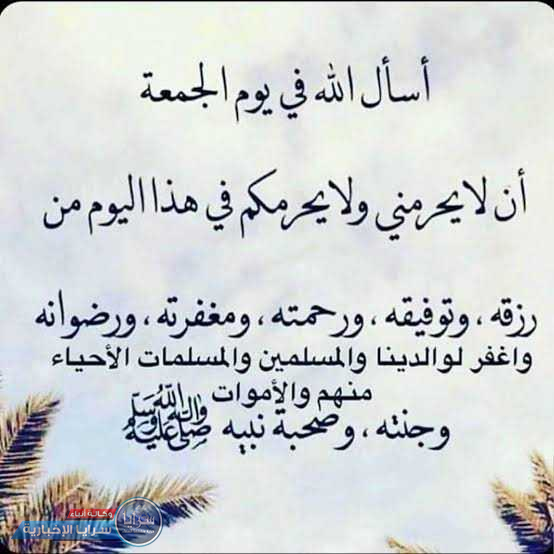 أسأل الله في يوم الجمعة
أن لا يحرمني ولا يحرمكم في هذا اليوم من
رزقه ، وتوفيقه ، ورحمته ، ومغفرته ، ورضوانه
واغفر لوالدينا والمسلمين والمسلمات الأحياء
منهم والأموات
وجنته ، وصحبة نبيه ﷺ
وكالة أنباء
سرايا الإخبارية
سرايا